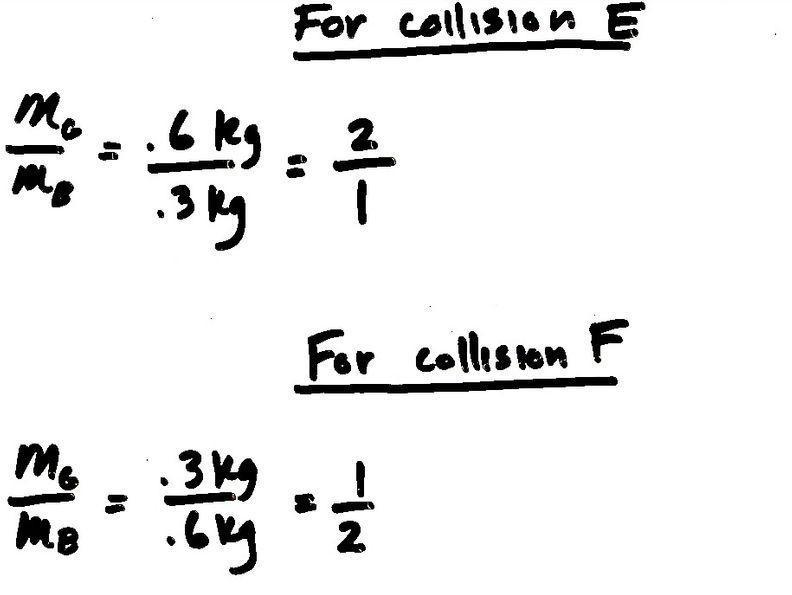 For collision E
m_G / m_B = .6 kg / .3 kg = 2 / 1
For collision F
m_G / m_B = .3 kg / .6 kg = 1 / 2